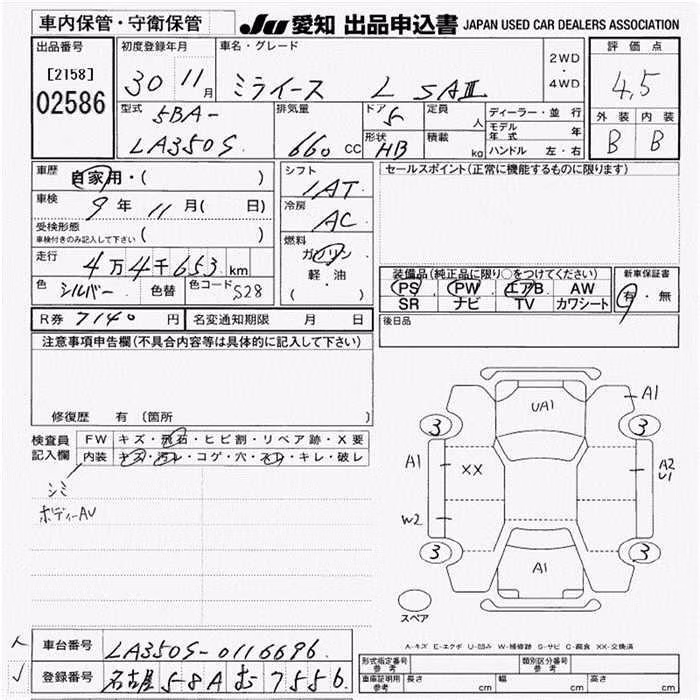 車内保管・守衛保管 JU 愛知 出品申込書 JAPAN USED CAR DEALERS ASSOCIATION
出品番号 [2158] 02586
初度登録年月 30 11月
車名・グレード ミライース L SAⅢ
2WD・4WD
評価点 4.5
外装 内装
B B
型式 5BA-LA350S
排気量 660 CC
ドア 5
形状 HB
定員 人
積載 kg
ディーラー・並行
モデル年式 年
ハンドル 左・右
車歴 自家用・( )
車検 9年11月( 日)
受検形態 車検付きのみ記入して下さい ( )
走行 4万4千653 km
色 シルバー 色替 色コード S28
シフト IAT
冷房 AC
燃料 ガソリン 軽油 ( ・ )
セールスポイント(正常に機能するものに限ります)
装備品(純正品に限り○をつけてください)
PS PW エアB AW
SR ナビ TV カワシート
新車保証書
有・無
R券 7140 円 名変通知期限 月 日
後日品
注意事項申告欄(不具合内容等は具体的に記入して下さい)
修復歴 有 〔箇所 〕
検査員記入欄
FW キズ・飛石・ヒビ割・リペア跡・X要
内装 キズ・汚レ・コゲ・穴・スレ・キレ・破レ
シミ
ボディーAU
UA1
A1
3
3
A1
XX
A2
U1
W2
3
3
A1
スペア
A-キズ E-エクボ U-凹み W-補修跡 S-サビ C-腐食 XX-交換済
車台番号 LA350S-0116696
登録番号 名古屋 58A む 7556
型式指定番号 参考
類別区分番号 参考
車庫証明用 参考 長さ cm 幅 cm 高さ cm